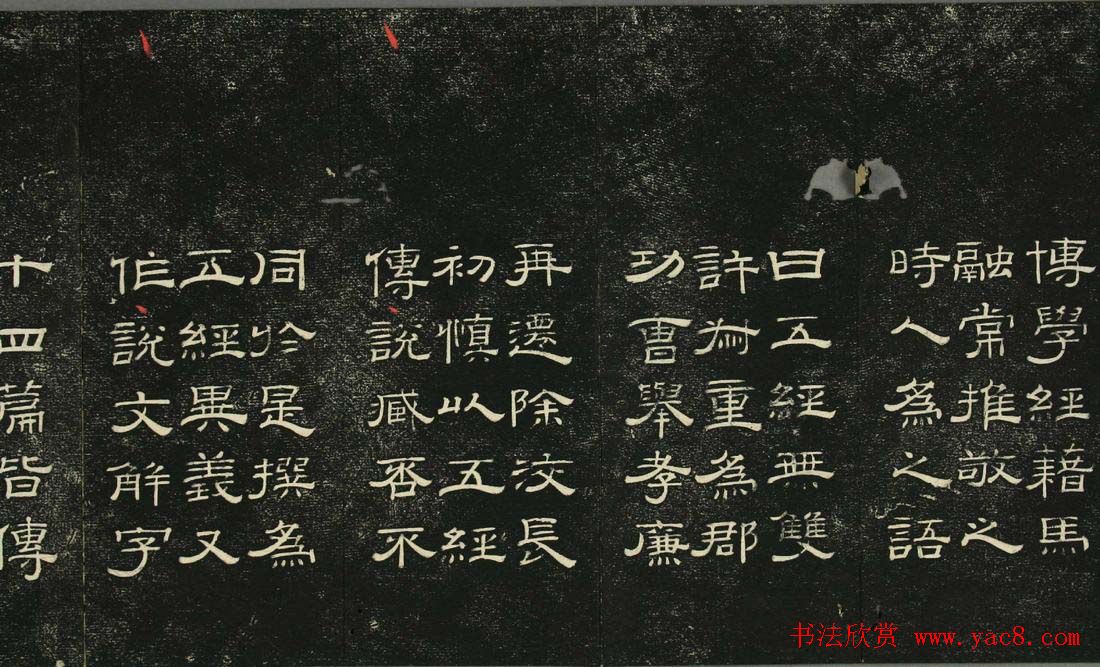 博學經藉馬
融常推敬之
時人為之語
曰五經無雙
許叔重為郡
功曹舉孝廉
再遷除洨長
初慎以五經
傳說臧否不
同於是撰為
五經異義又
作說文解字
十四篇皆傳
书法欣赏 www.yac8.com